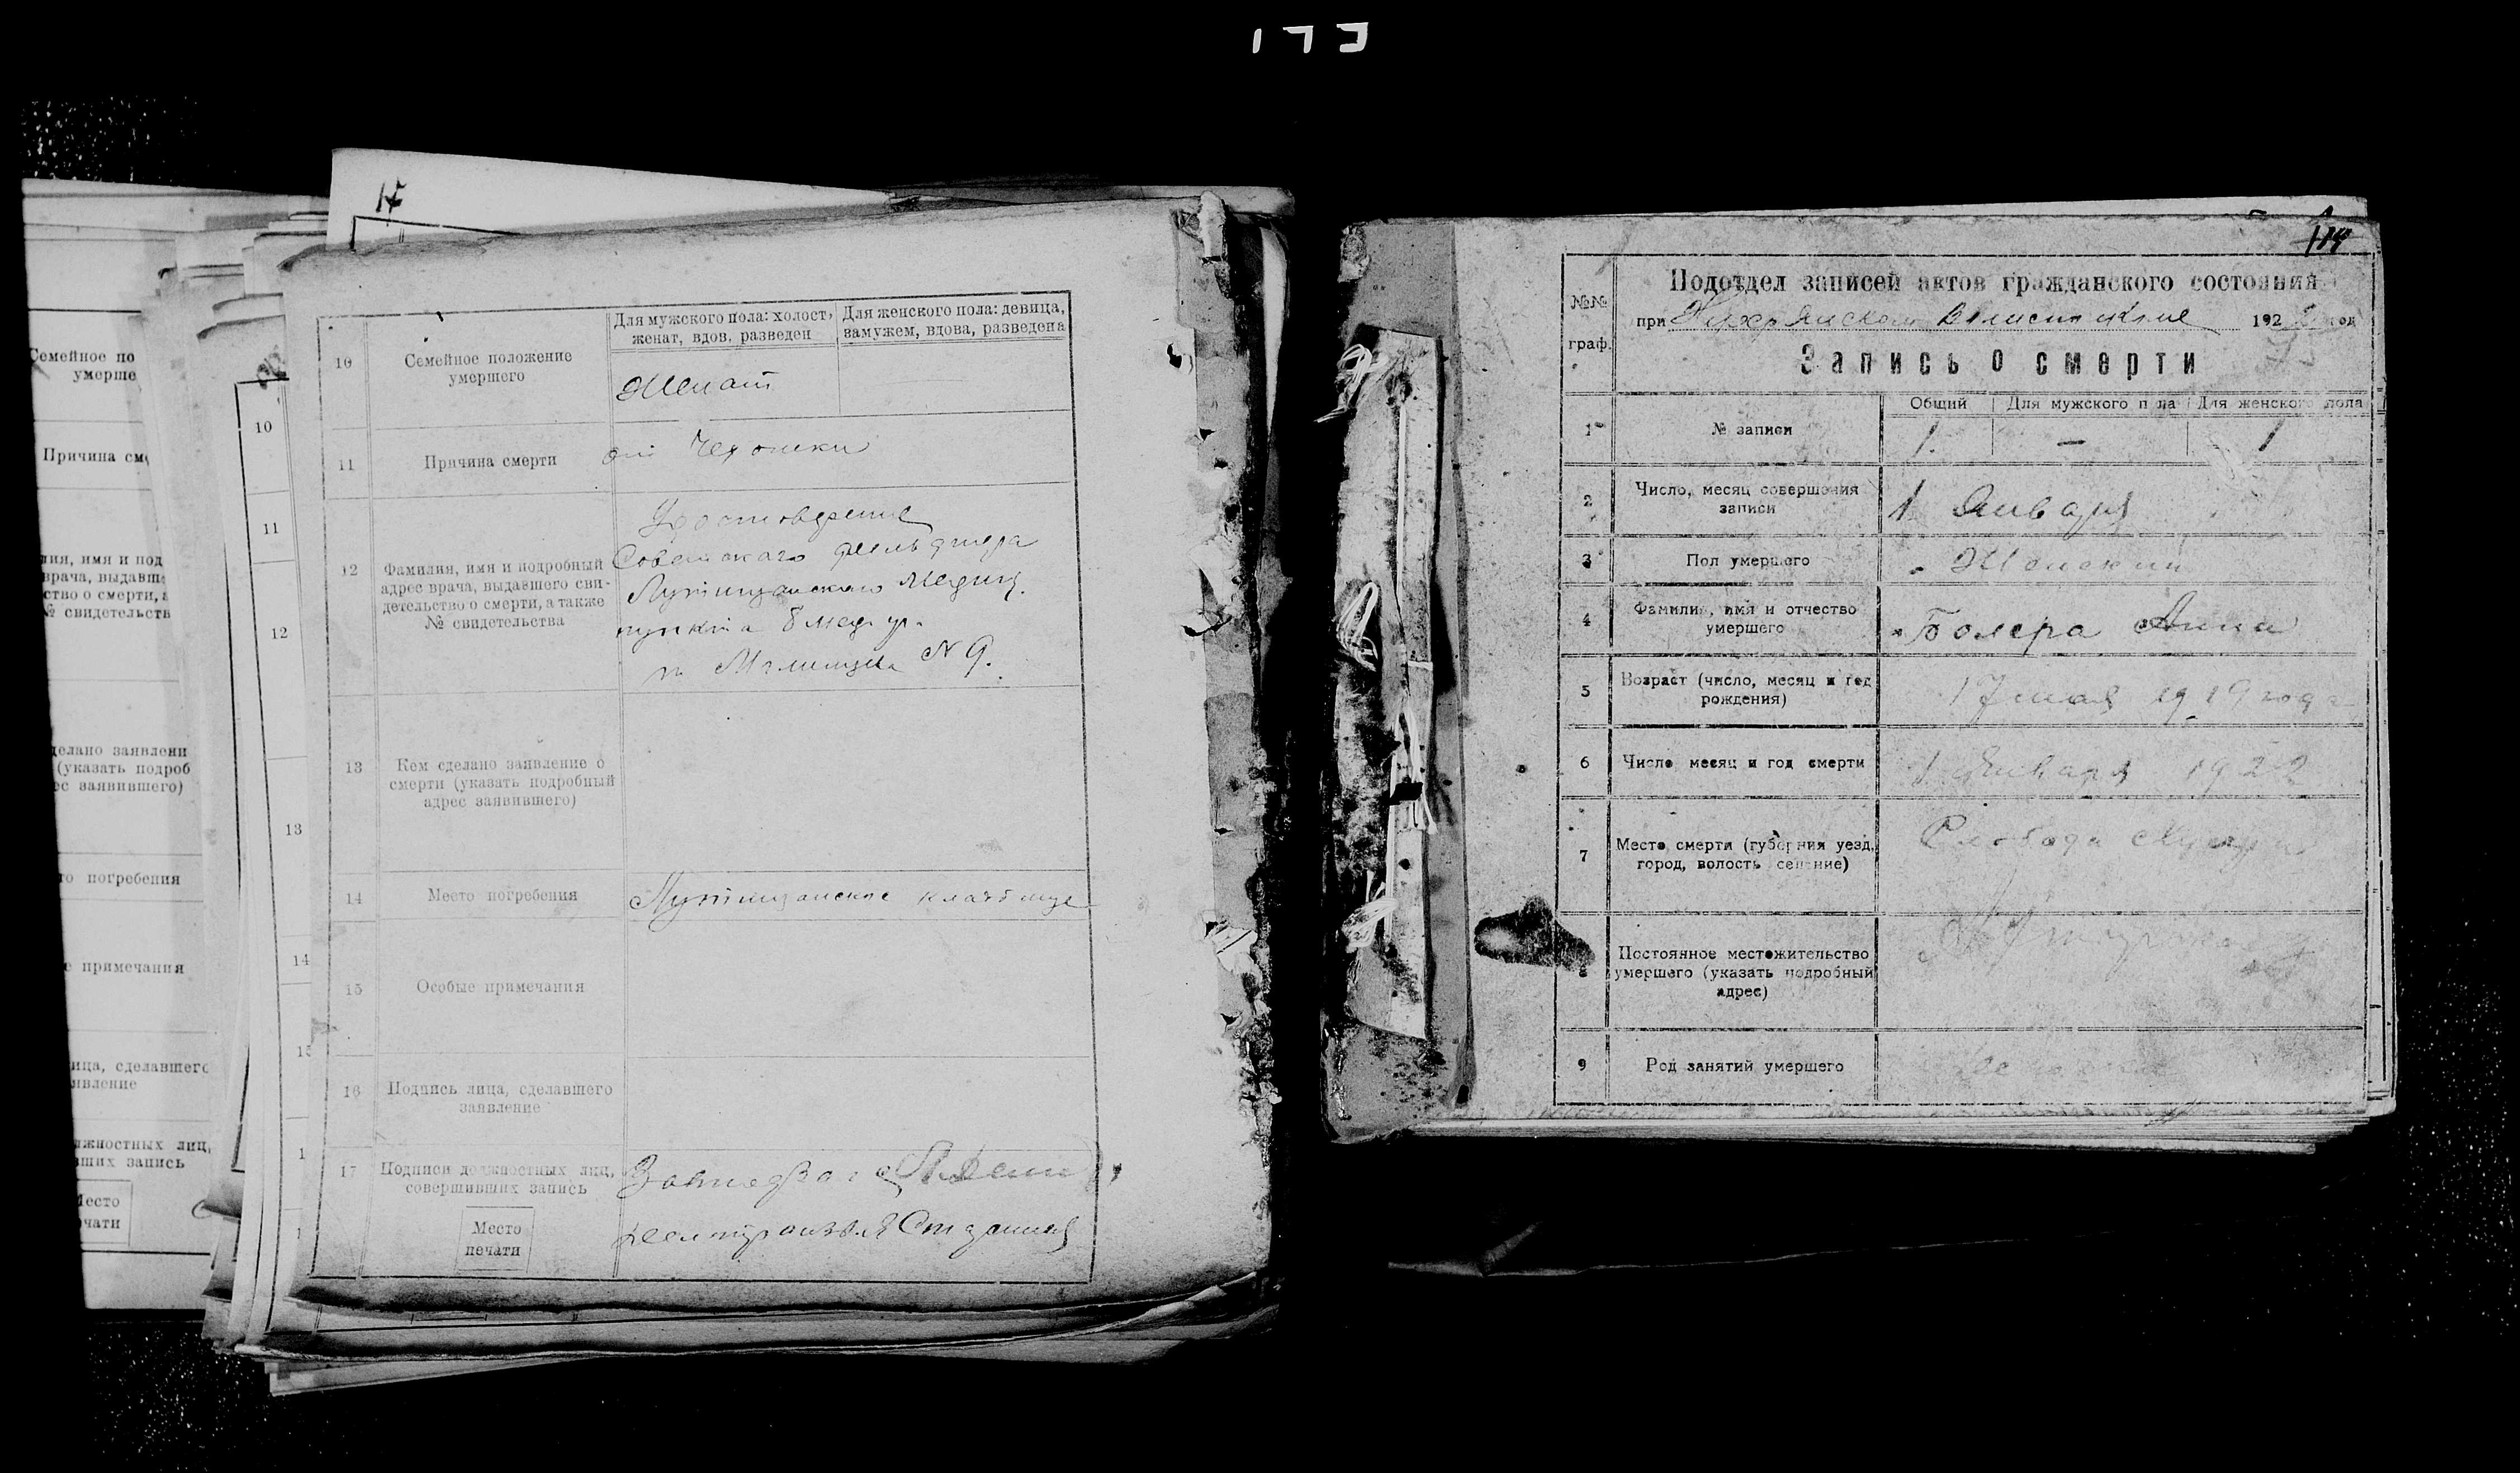 173
17
Семейное по
умерше
Причина см
ия, имя и под
врача, выдавш
ство о смерти, а
№ свидетельств
делано заявлени
(указать подроб
ес заявившего)
то погребения
е примечания
ица, сделавшего
явление
лжностных лиц,
вших запись
Место
чати
10
11
12
13
14
15
1
1
10
Семейное положение
умершего
Для мужского пола: холост,
женат, вдов, разведен
Для женского пола: девица,
замужем, вдова, разведена
Женат
11
Причина смерти
от
12
Фамилия, имя и подробный
адрес врача, выдавшего сви-
детельство о смерти, а также
№ свидетельства
Удостоверение
Советскаго фельдшера
медиц.
пункта 8 мед. уч.
N 9.
13
Кем сделано заявление о
смерти (указать подробный
адрес заявившего)
14
Место погребения
кладбище
15
Особые примечания
16
Подпись лица, сделавшего
заявление
17
Подписи должностных лиц,
совершивших запись
Место
печати
114
№№
граф.
Подотдел записей актов гражданского состояния
при 192 2 год
Запись о смерти
Общий
Для мужского пола
Для женского пола
1
№ записи
1.
—
1
2
Число, месяц совершения
записи
1 Января
3
Пол умершего
Женский
4
Фамилия, имя и отчество
умершего
Анна
5
Возраст (число, месяц и год
рождения)
17 мая 1919 года
6
Число месяц и год смерти
1 Января 1922
7
Место смерти (губерния уезд,
город, волость селение)
Слобода
8
Постоянное местожительство
умершего (указать подробный
адрес)
9
Род занятий умершего